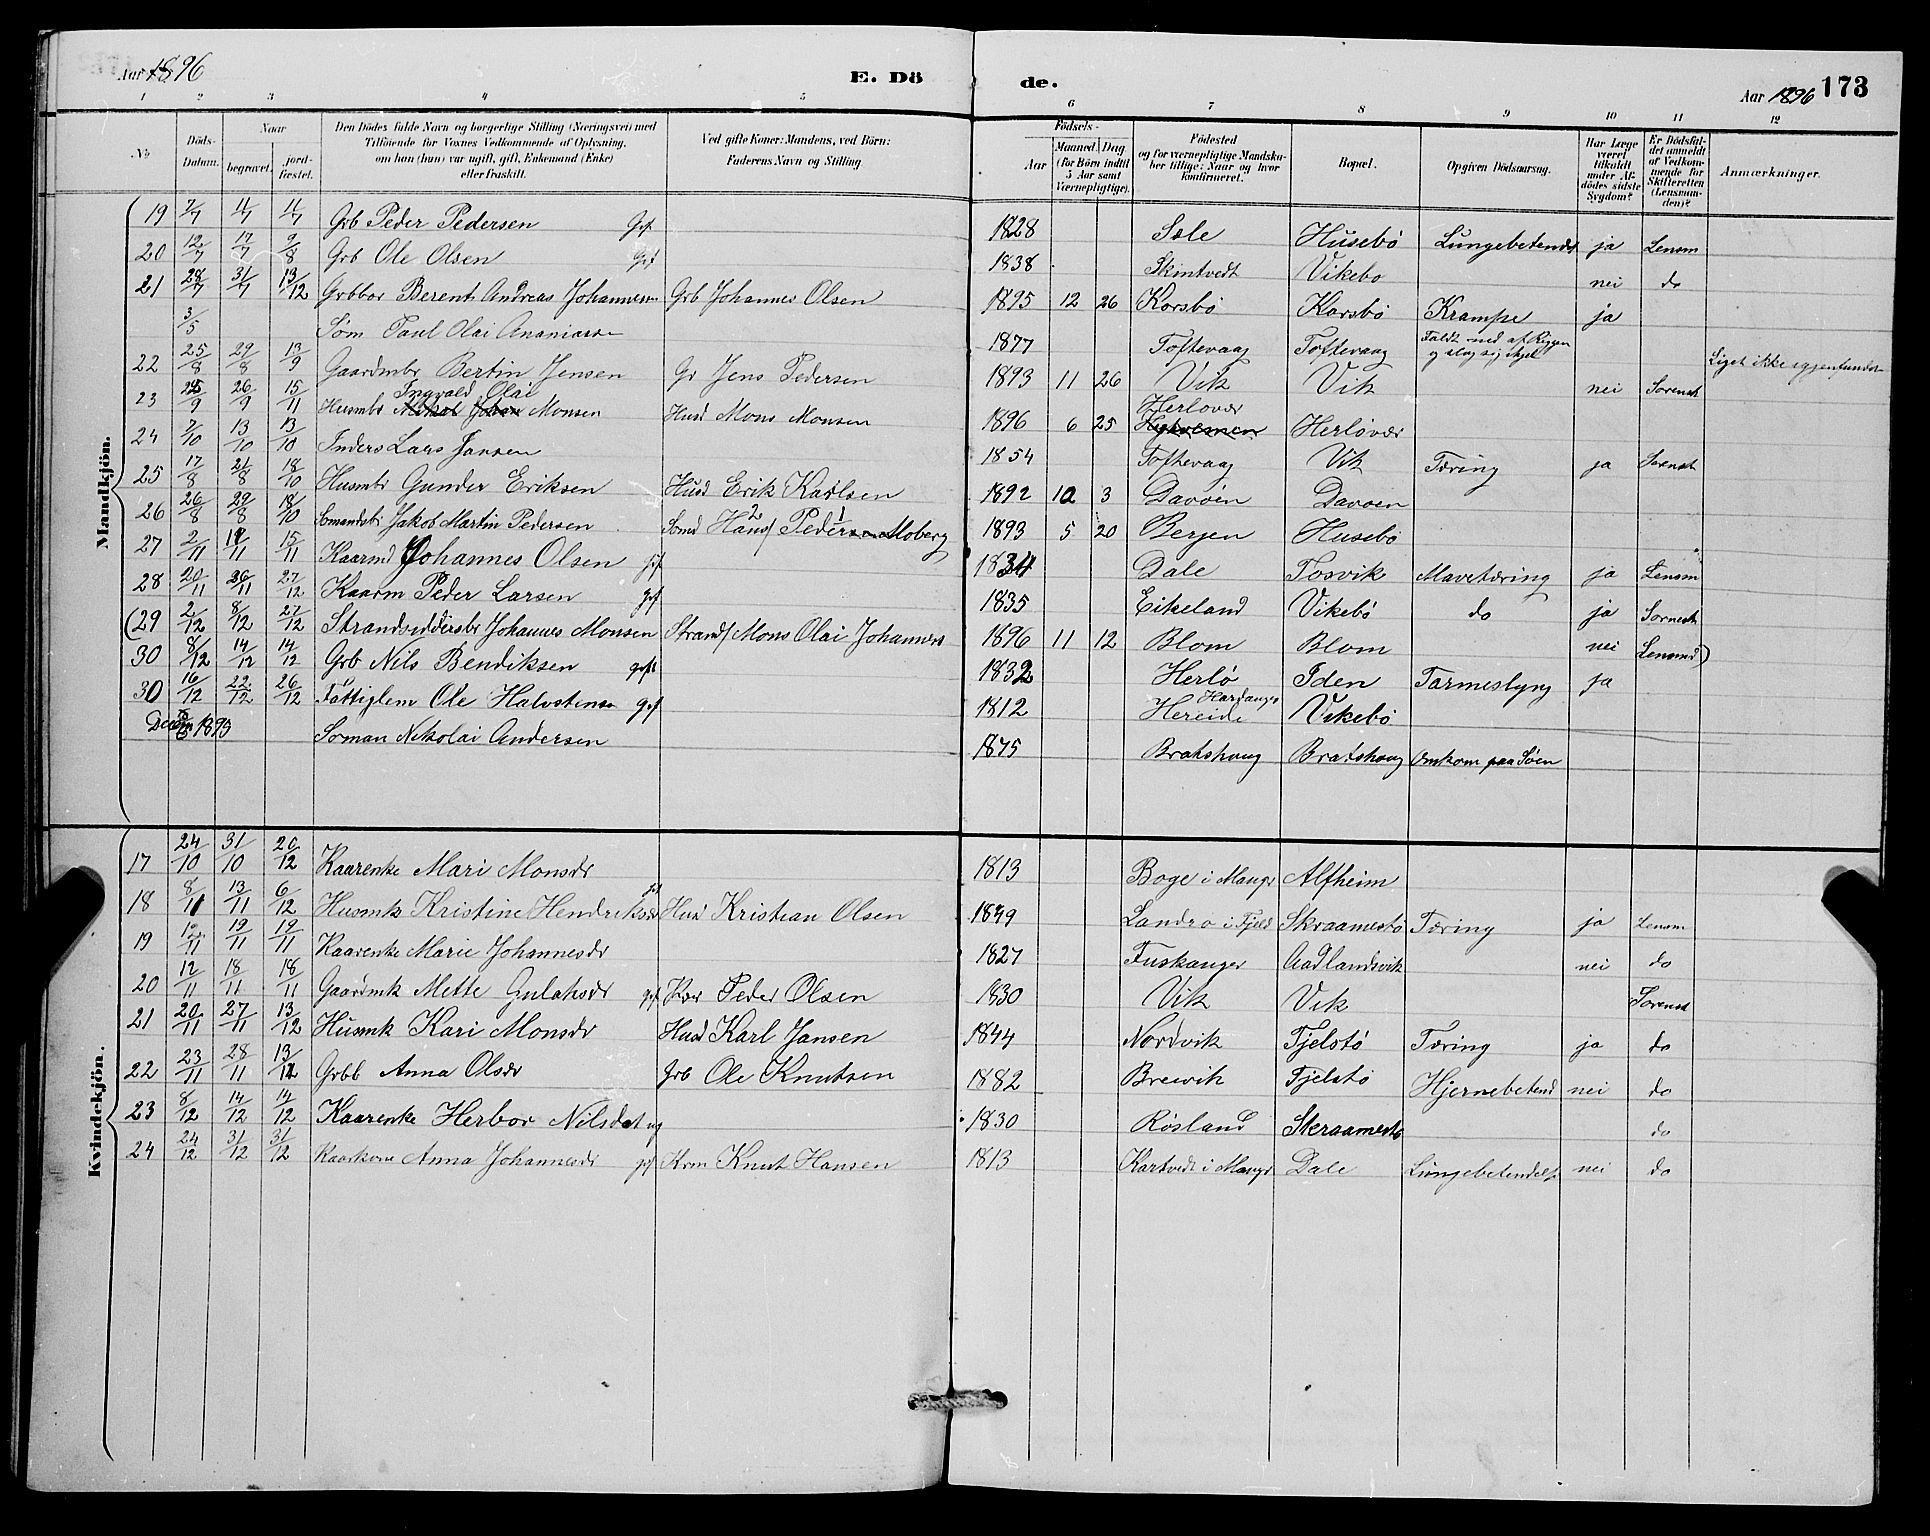 Aar 1896 E. Dö de. Aar 1896 173
1 2 3 4 5 6 7 8 9 10 11 12
No Döds-Datum. Naar begravet. jord-fæstet. Den Dödes fulde Navn og borgerlige Stilling (Næringsvei) med Tilföiende for Voxnes Vedkommende af Oplysning, om han (hun) var ugift, gift, Enkemand (Enke) eller fraskilt. Ved gifte Koner: Mandens, ved Börn: Faderens Navn og Stilling. Födsels- Aar Maaned Dag (for Börn indtil 5 Aar samt Værnepligtige). Födested og for værnepligtige Mandskaber tillige: Naar og hvor konfirmeret. Bopæl. Opgiven Dödsaarsag. Har Læge været tilkaldt under Afdödes sidste Sygdom? Er Dödsfaldet anmeldt af Vedkommende for Skifteretten (Lensmanden)? Anmærkninger.
Mandkjön.
19 7/7 11/7 11/7 Grb Peder Pedersen Gift 1828 Sæle Husebö Lungebetendse ja Lensm
20 12/7 17/7 9/8 Grb Ole Olsen Gift 1838 Skintvedt Vikebo nei do
21 28/7 31/7 13/12 Grbbar Berent Andreas Johannessen Grb Johannes Olsen 1895 12 26 Korsbö Korsbö Krampe ja
3/5 Søm Paul Olai Ananiassen 1877 Toftevaag Toftevaag Faldt ned af Riggen og slog sig ihjel Liget ikke igjenfundet
22 25/8 29/8 13/9 Gaardmbr Bertin Jensen Gr Jens Pedersen 1893 11 26 Vik Vik nei Sorenst
23 25/9 26/9 15/11 Husmbr Ingvald Olai Monsen Husd Mons Monsen 1896 6 25 Herlovær Herlövær
24 7/10 13/10 13/10 Inders Lars Jansen 1854 Toftevaag Vik Tæring ja Sorenst
25 17/8 21/8 18/10 Husmbr Gunder Eriksen Husd Erik Karlsen 1892 10 3 Davöen Davoen
26 26/8 29/8 18/10 Somandsbr Jakob Martin Pedersen Somd Hans Peder Moberg 1893 5 20 Bergen Husebö
27 2/11 11/11 15/11 Kaarmd Johannes Olsen gift 1834 Dale Tosvik Mavetæring ja Lensm
28 20/11 26/11 27/12 Kaarm Peder Larsen gift 1835 Eikeland Vikebö do ja Sornest
(29 2/12 8/12 27/12 Strandsidderbr Johannes Monsen Strand/ Mons Olai Johannes 1896 11 12 Blom Blom nei Lensmd)
30 8/12 14/12 14/12 Grb Nils Bendiksen gift 1832 Herlö Iden Tarmeslyng ja
30 16/12 22/12 26/12 Fattiglem Ole Halvstensen gift 1812 Hereide Hardanger Vikebö
Decem 1893 Soman Nikolai Andersen 1875 Bratshaug Bratshaug Omkom paa Söen
Kvindekjön.
17 24/10 31/10 20/12 Kaarenke Mari Monsdr 1813 Boge i Manger Alfheim
18 8/11 13/11 6/12 Husmk Kristine Hendriksdr gift Husd Kristian Olsen 1849 Landro i Fjeld Skraamestö Tæring ja Lensm
19 19/11 19/11 Kaarenke Marie Johannesdr 1827 Fuskanger Aadlandsvik nei do
20 12/11 18/11 18/11 Gaardmk Mette Gulaksdr gift Kaar Peder Olsen 1830 Vik Vik Sorenst
21 20/11 27/11 13/12 Husmk Kari Monsdr Husd Karl Jansen 1844 Nordvik Fjelstö Tæring ja do
22 23/11 28/11 13/12 Grbb Anna Olsdr Grb Ole Knutsen 1882 Breivik Fjelstö Hjernebetend nei do
23 8/12 14/12 14/12 Kaarenke Herbor Nilsdat ug 1830 Rösland Skraamestö do
24 24/12 31/12 31/12 Kaarkone Anna Johannesdr gift Krm Knut Hansen 1813 Kartvedt i Manger Dale Lungebetendelse nei do